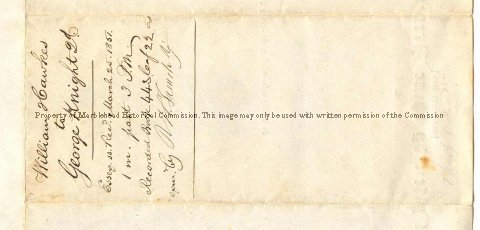 William Hawkes
to
George Knight 2d
Essex ss. Rec'd March 25. 1851.
1 m. past 3 P.M.
Recorded Book 443 Leaf 22
by
Property of Marblehead Historical Commission. This image may only be used with written permission of the Commission